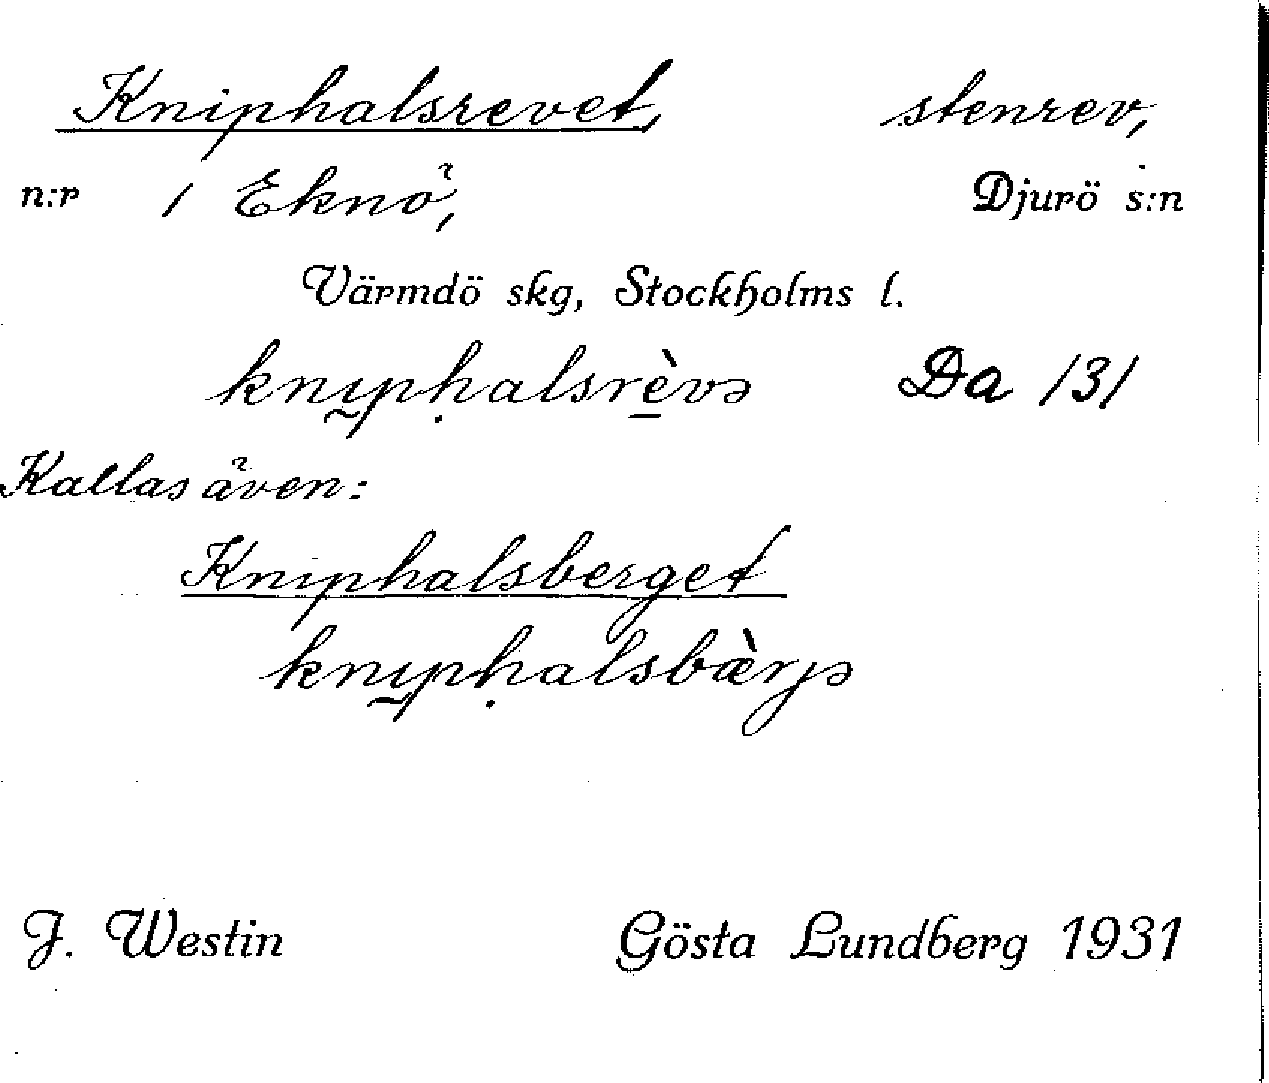 Kniphalsrevet, stenrev,
n:r 1 Eknö, Djurö s:n
Värmdö skg, Stockholms l.
knıp̣halsrèvə Da 131
Kallas även:
Kniphalsberget
knıpḥalsbæ̀rjə
J. Westin Gösta Lundberg 1931